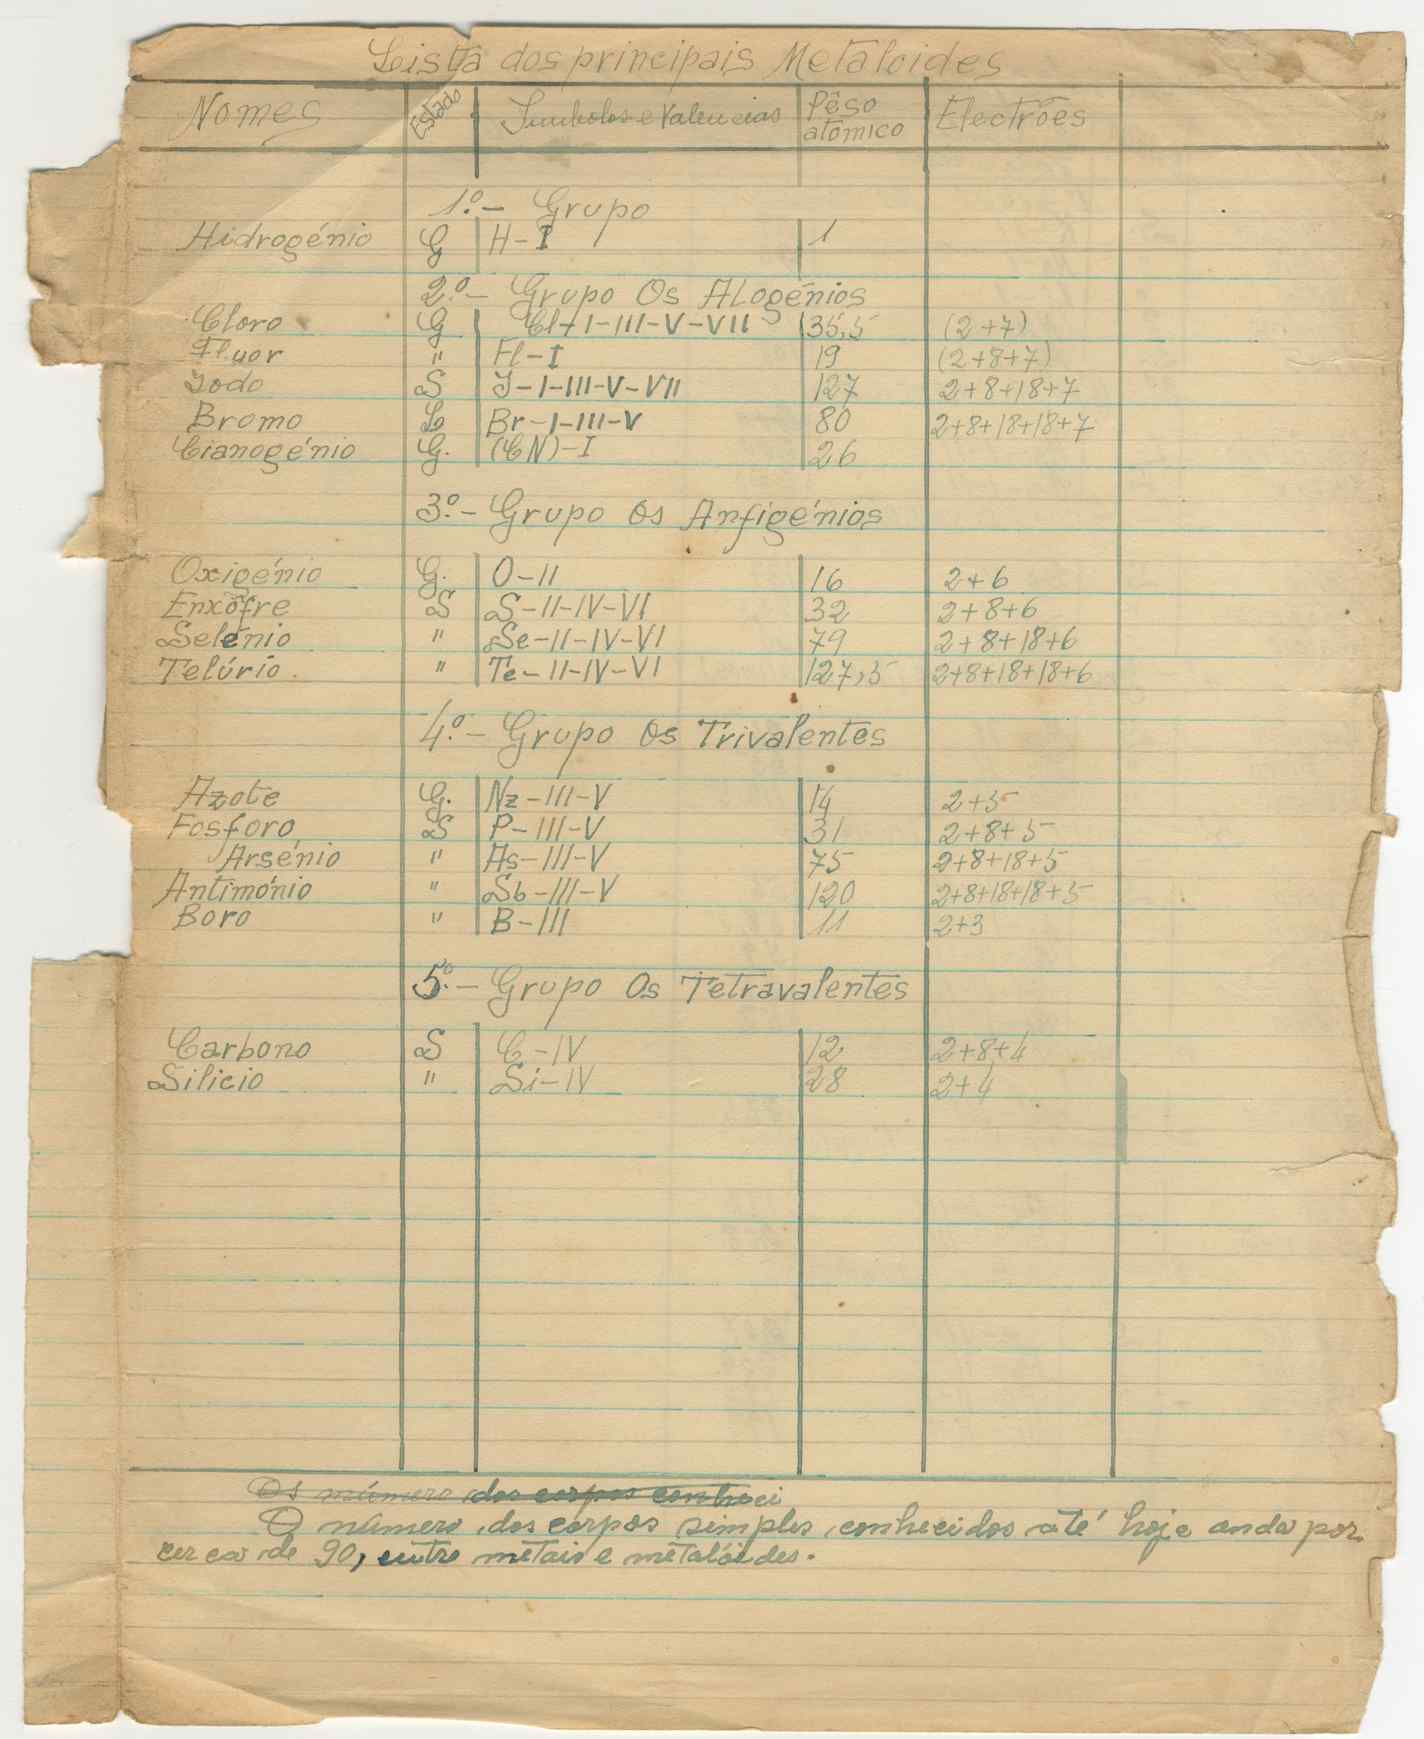 Lista dos principais Metaloides
Nomes Estado Simbolos e Valencias Pêso atomico Electrões
1.º - Grupo
Hidrogénio G H-I 1
2.º - Grupo Os Alogénios
Cloro G Cl+I-III-V-VII 35,5 (2+7)
Fluor " Fl-I 19 (2+8+7)
Iodo S I-I-III-V-VII 127 2+8+18+7
Bromo L Br-I-III-V 80 2+8+18+18+7
Cianogénio G. (CN)-I 26
3.º - Grupo Os Anfigénios
Oxigénio G. O-II 16 2+6
Enxôfre S S-II-IV-VI 32 2+8+6
Selénio " Se-II-IV-VI 79 2+8+18+6
Telúrio. " Te-II-IV-VI 127,5 2+8+18+18+6
4.º - Grupo Os Trivalentes
Azote G. Nz-III-V 14 2+5
Fosforo S P-III-V 31 2+8+5
Arsénio " As-III-V 75 2+8+18+5
Antimónio " Sb-III-V 120 2+8+18+18+5
Boro " B-III 11 2+3
5.º - Grupo Os Tetravalentes
Carbono S C-IV 12 2+8+4
Silicio " Si-IV 28 2+4
Os número dos corpos conheci
O número dos corpos simples conhecidos até hoje anda por
cerca de 90, entre metais e metalóides.